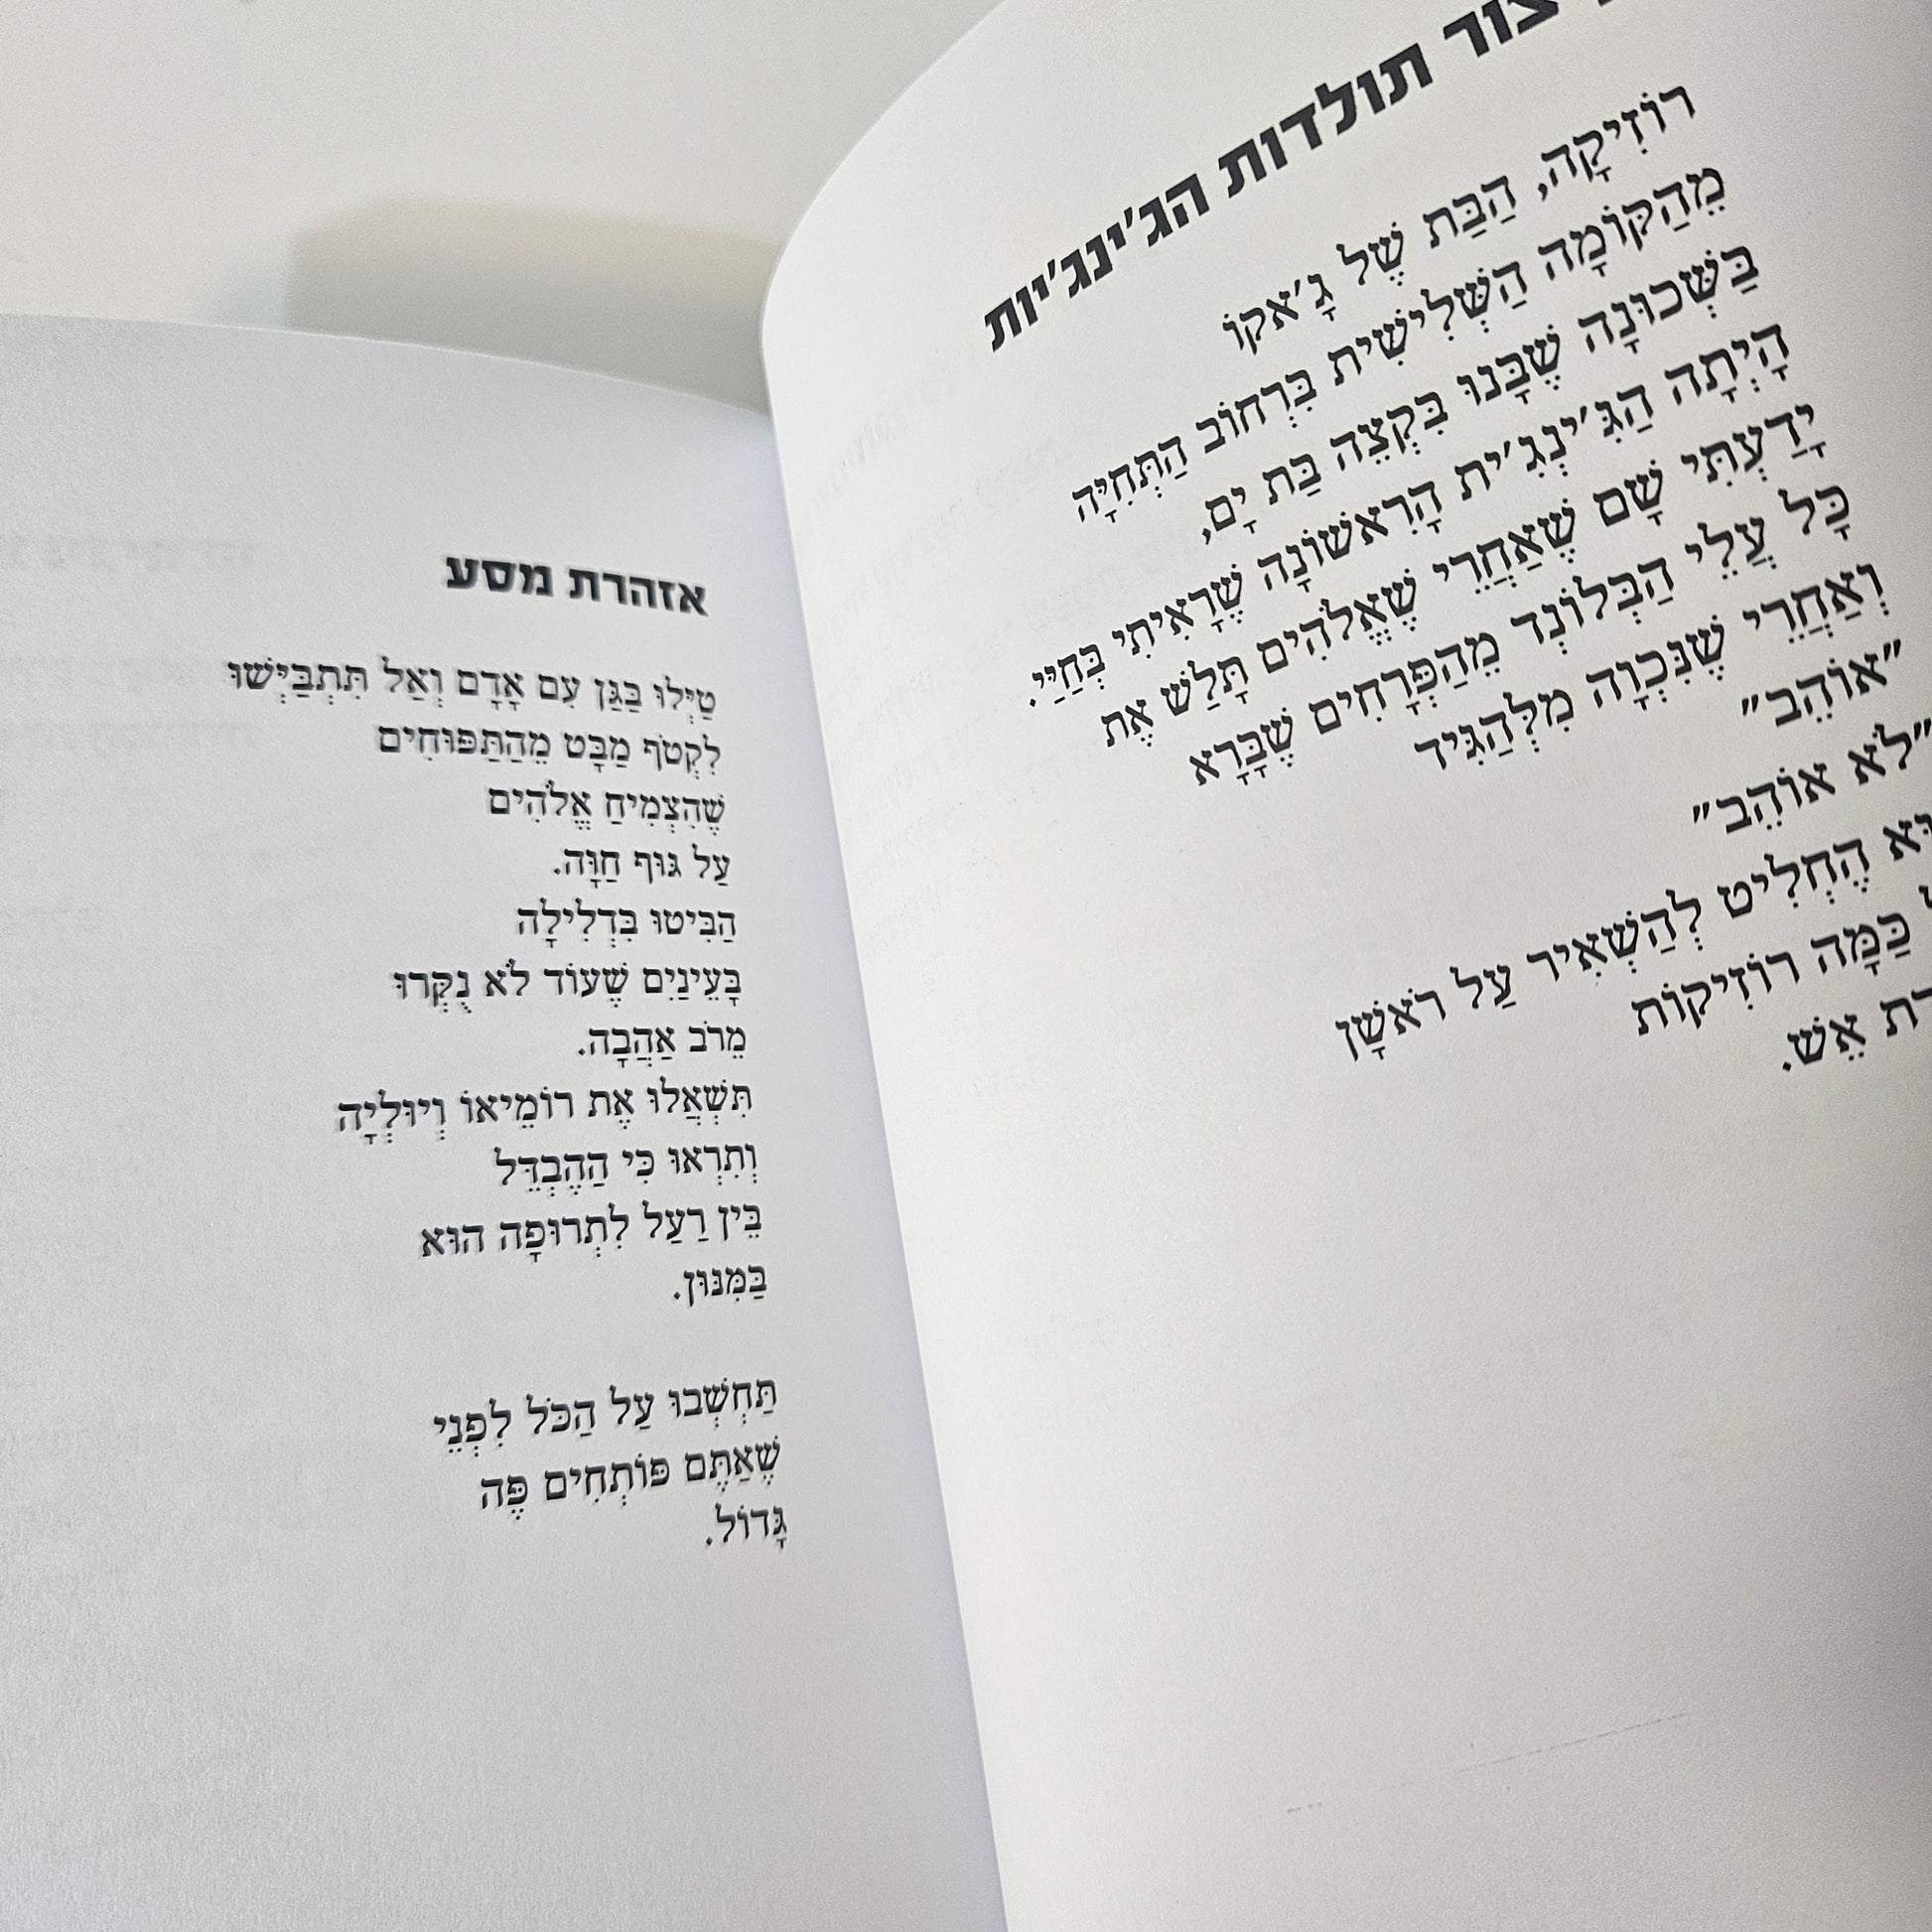 תולדות הג'ינג'יות
רוֹזִיקָה, הַבַּת שֶׁל גָ'אקוֹ
מֵהַקּוֹמָה הַשְּׁלִישִׁית בִּרְחוֹב הַתְּחִיָּה
בַּשְּׁכוּנָה שֶׁבָּנוּ בִּקְצֵה בַּת יָם,
הָיְתָה הַגִּ'ינְגִּ'ית הָרִאשׁוֹנָה שֶׁרָאִיתִי בְּחַיַּי.
יָדַעְתִּי שָׁם שֶׁאַחֲרֵי שֶׁאֱלֹהִים תָּלַשׁ אֶת
כָּל עֲלֵי הַבְּלוֹנְד מֵהַפְּרָחִים שֶׁבָּרָא
וְאַחֲרֵי שֶׁנִּכְוָה מִלְּהַגִּיד
"אוֹהֵב"
"לֹא אוֹהֵב"
הֶחְלִיט לְהַשְׁאִיר עַל רֹאשָׁן
כַּמָּה רוֹזִיקוֹת
אֵשׁ.
אזהרת מסע
טַיְּלוּ בַּגַּן עִם אָדָם וְאַל תִּתְבַּיְּשׁוּ
לִקְטֹף מַבָּט מֵהַתַּפּוּחִים
שֶׁהִצְמִיחַ אֱלֹהִים
עַל גּוּף חַוָּה.
הַבִּיטוּ בִּדְלִילָה
בָּעֵינַיִם שֶׁעוֹד לֹא נֻקְּרוּ
מֵרֹב אַהֲבָה.
תִּשְׁאֲלוּ אֶת רוֹמֵיאוֹ וְיוּלְיָה
וְתִרְאוּ כִּי הַהֶבְדֵּל
בֵּין רַעַל לִתְרוּפָה הוּא
בַּמִּנּוּן.
תַּחְשְׁבוּ עַל הַכֹּל לִפְנֵי
שֶׁאַתֶּם פּוֹתְחִים פֶּה
גָּדוֹל.